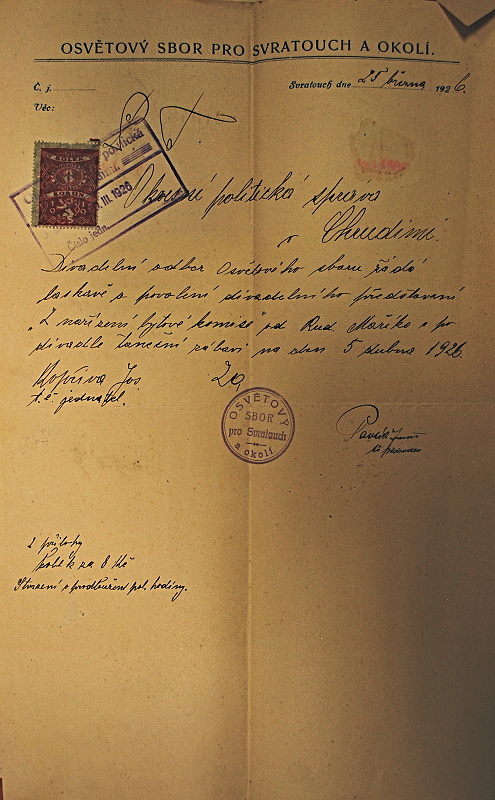 OSVĚTOVÝ SBOR PRO SVRATOUCH A OKOLÍ.
Č. j.
Svratouch dne 25 března 1926.
Věc:
P T
KOLEK
8
politická
III. 1926
Číslo jedn.
Okresní politická správa
v Chrudimi
Divadelní odbor Osvětového sboru žádá
laskavě o povolení divadelního představení
"Z nařízení bytové komise" od Rud. Maříka s po
divadle taneční zábavě na den 5 dubna 1926
Kopřiva Jos
t. č. jednatel.
Za
OSVĚTOVÝ
SBOR
pro Svratouch
a okolí
Pavlík
tč předseda
2 přílohy
kolek za 8 Kč
o prodloužení pol. hodiny.